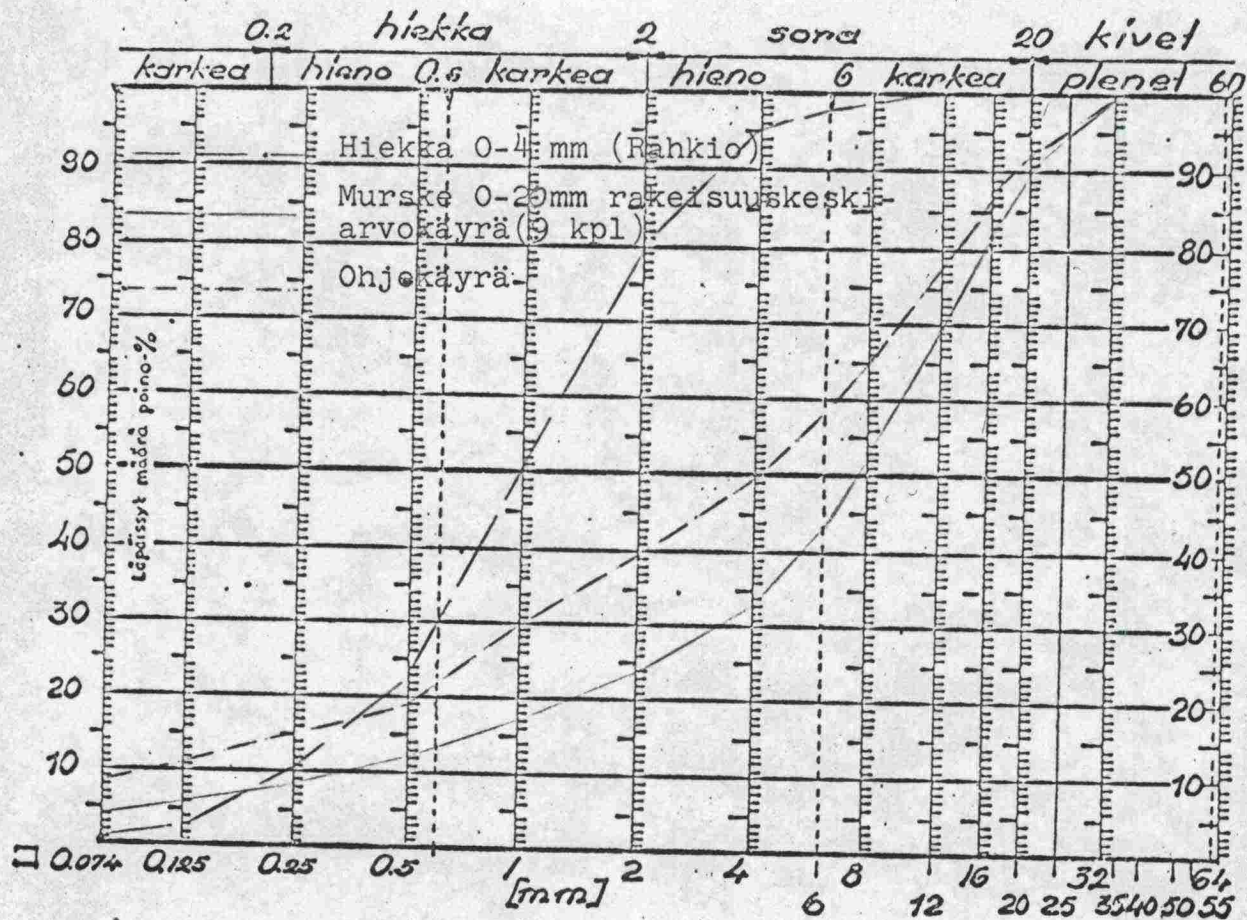 0.2 hiekka 2 sora 20 kivet
karkea hieno 0.6 karkea hieno 6 karkea pienet 60
Hiekka 0-4 mm (Rahkio)
Murske 0-20mm rakeisuuskeski-
arvokäyrä(9 kpl)
Ohjekäyrä
Läpäissyt määrä paino-%
90
80
70
60
50
40
30
20
10
90
80
70
60
50
40
30
20
10
0.074 0.125 0.25 0.5 1 2 4 8 16 32 64
[mm] 6 12 20 25 35 40 50 55